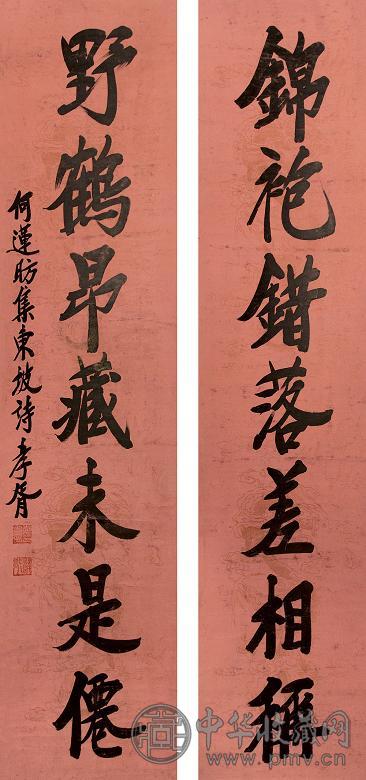 錦袍錯落差相稱
野鶴昂藏未是僊
何蓮昉集東坡詩 孝胥
中华收藏网
www.pmv.cn